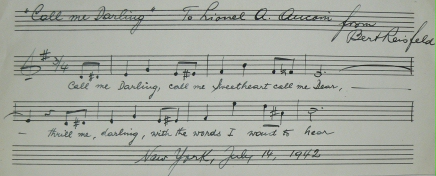 "Call me Darling" To Lionel A. Aucoin from
Bert Reisfeld
3/4
Call me Darling, call me Sweetheart call me Dear,
Thrill me, darling, with the words I want to hear
New York, July 14, 1942